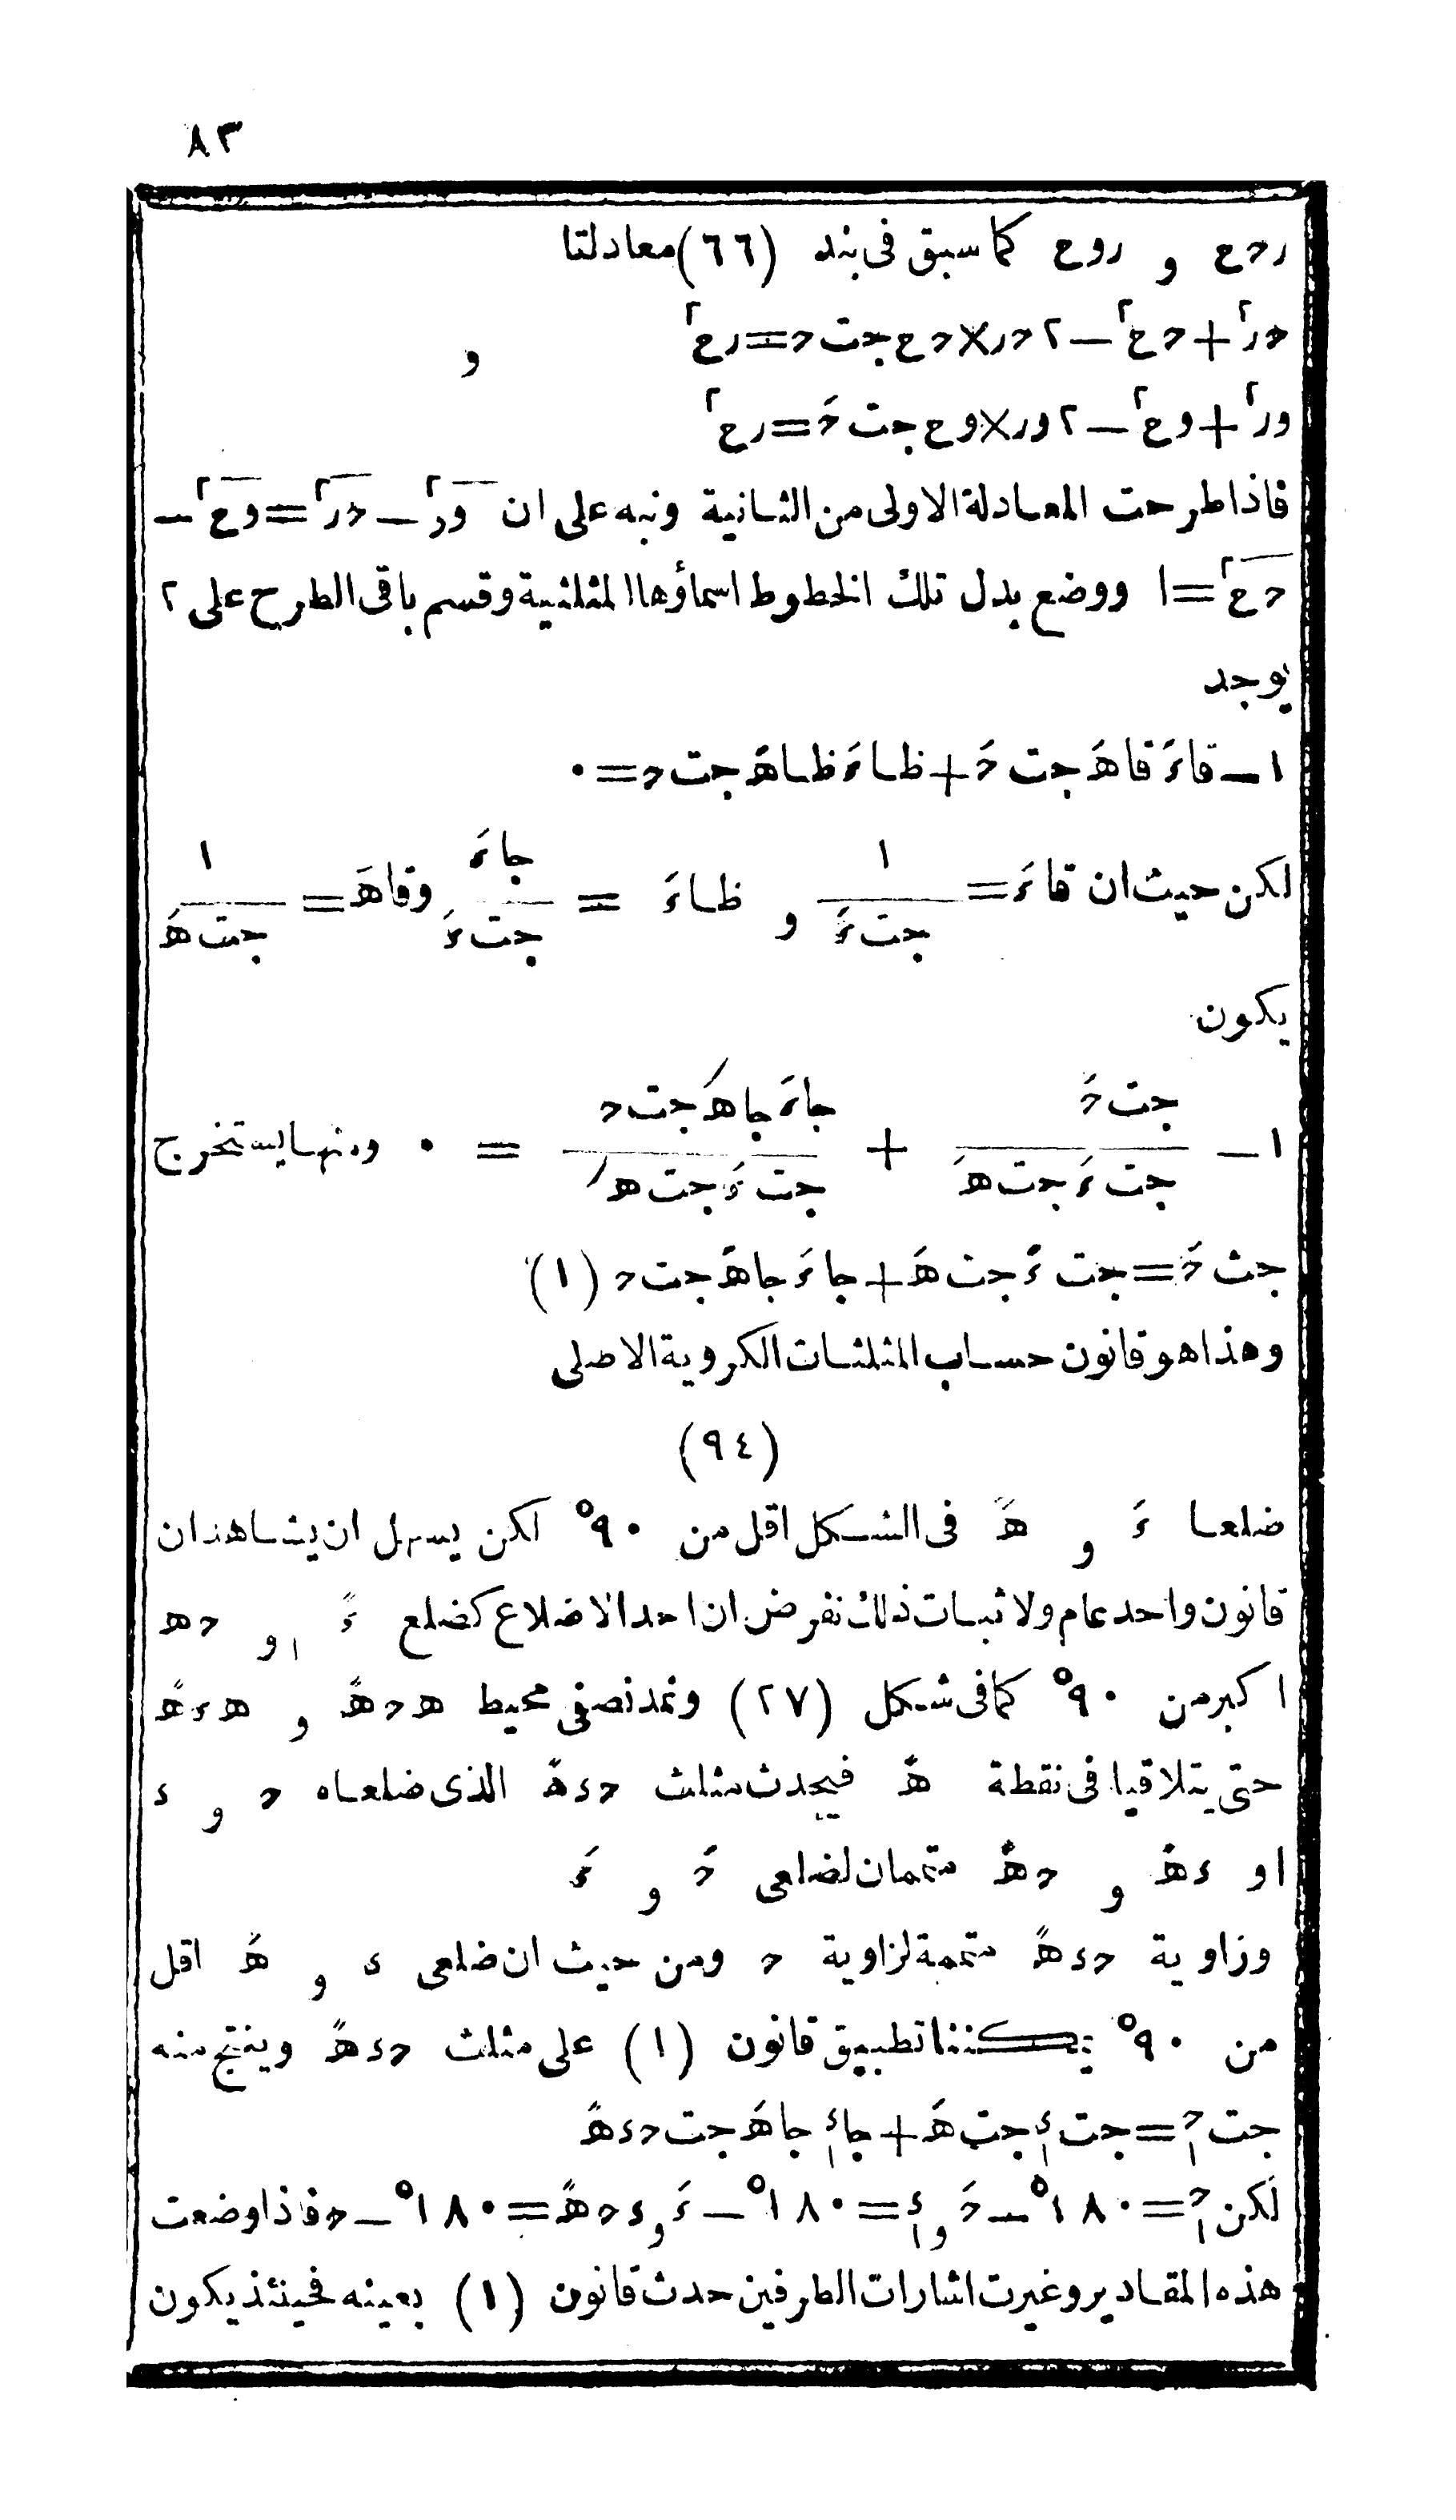 ٨٣
رحع و روع كما سبق فى بند (٦٦) معادلتا
حر٢ + حع٢ — ٢ حر × حع جت ح = رع٢ و
ور٢ + وع٢ — ٢ ور × وع جت حَ = رع٢
فاذا طرحت المعادلة الاولى من الثانية ونبه على ان ور٢ — حر٢ = وع٢ —
حع٢ = ١ ووضع بدل تلك الخطوط اسماؤها المثلثية وقسم باقى الطرح على ٢
يوجد
١ — قاءَ قاهَ جت حَ + ظاءَ ظاهَ جت ح = ٠
لكن حيث ان قاءَ = ١/جت ءَ و ظاءَ = جاءَ/جت ءَ وقاهَ = ١/جت هَ
يكون
١ — جت حَ/جت ءَ جت هَ + جاءَ جاهَ جت ح/جت ءَ جت هَ = ٠ ومنها يستخرج
جت حَ = جت ءَ جت هَ + جاءَ جاهَ جت ح (١)
وهذا هو قانون حساب المثلثات الكروية الاصلى
(٩٤)
ضلعا ءَ و هَ فى الشكل اقل من ٩٠° لكن يسهل ان يشاهد ان
قانون واحد عام ولاثبات ذلك نفرض ان احد الاضلاع كضلع ءَ او حه
اكبر من ٩٠° كما فى شكل (٢٧) ونمد نصفى محيط هحهً و هءهً
حتى يتلاقيا فى نقطة هً فيحدث مثلث حءهً الذى ضلعاه ح و ء
او ءهً و حهً متممان لضلعى حَ و ءَ
وزاوية حءهً متممة لزاوية ح ومن حيث ان ضلعى ء و هَ اقل
من ٩٠° يمكننا تطبيق قانون (١) على مثلث حءهً وينتج منه
جت ح١ = جت ء١ جت هَ + جا ء١ جاهَ جت حءهً
لكن ح١ = ١٨٠° — حَ و ء١ = ١٨٠° — ءَ و ءحهً = ١٨٠° — ح فاذا وضعت
هذه المقادير وغيرت اشارات الطرفين حدث قانون (١) بعينه فحينئذ يكون